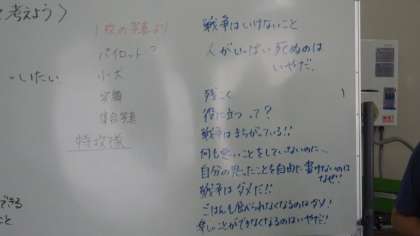 と考えよう>
1枚の写真より
パイロット?
~したい
小犬
笑顔
集合写真
特攻隊
できる
こと
戦争はいけないこと
人がいっぱい死ぬのは
いやだ。
残こく
役に立つって?
戦争はまちがっている!!
何も悪いことをしていないのに…
自分の思ったことを自由に書けないのは
なぜ!
戦争はダメだ!!
ごはんも食べられなくなるのはダメ!
楽しいことができなくなるのはいやだ!